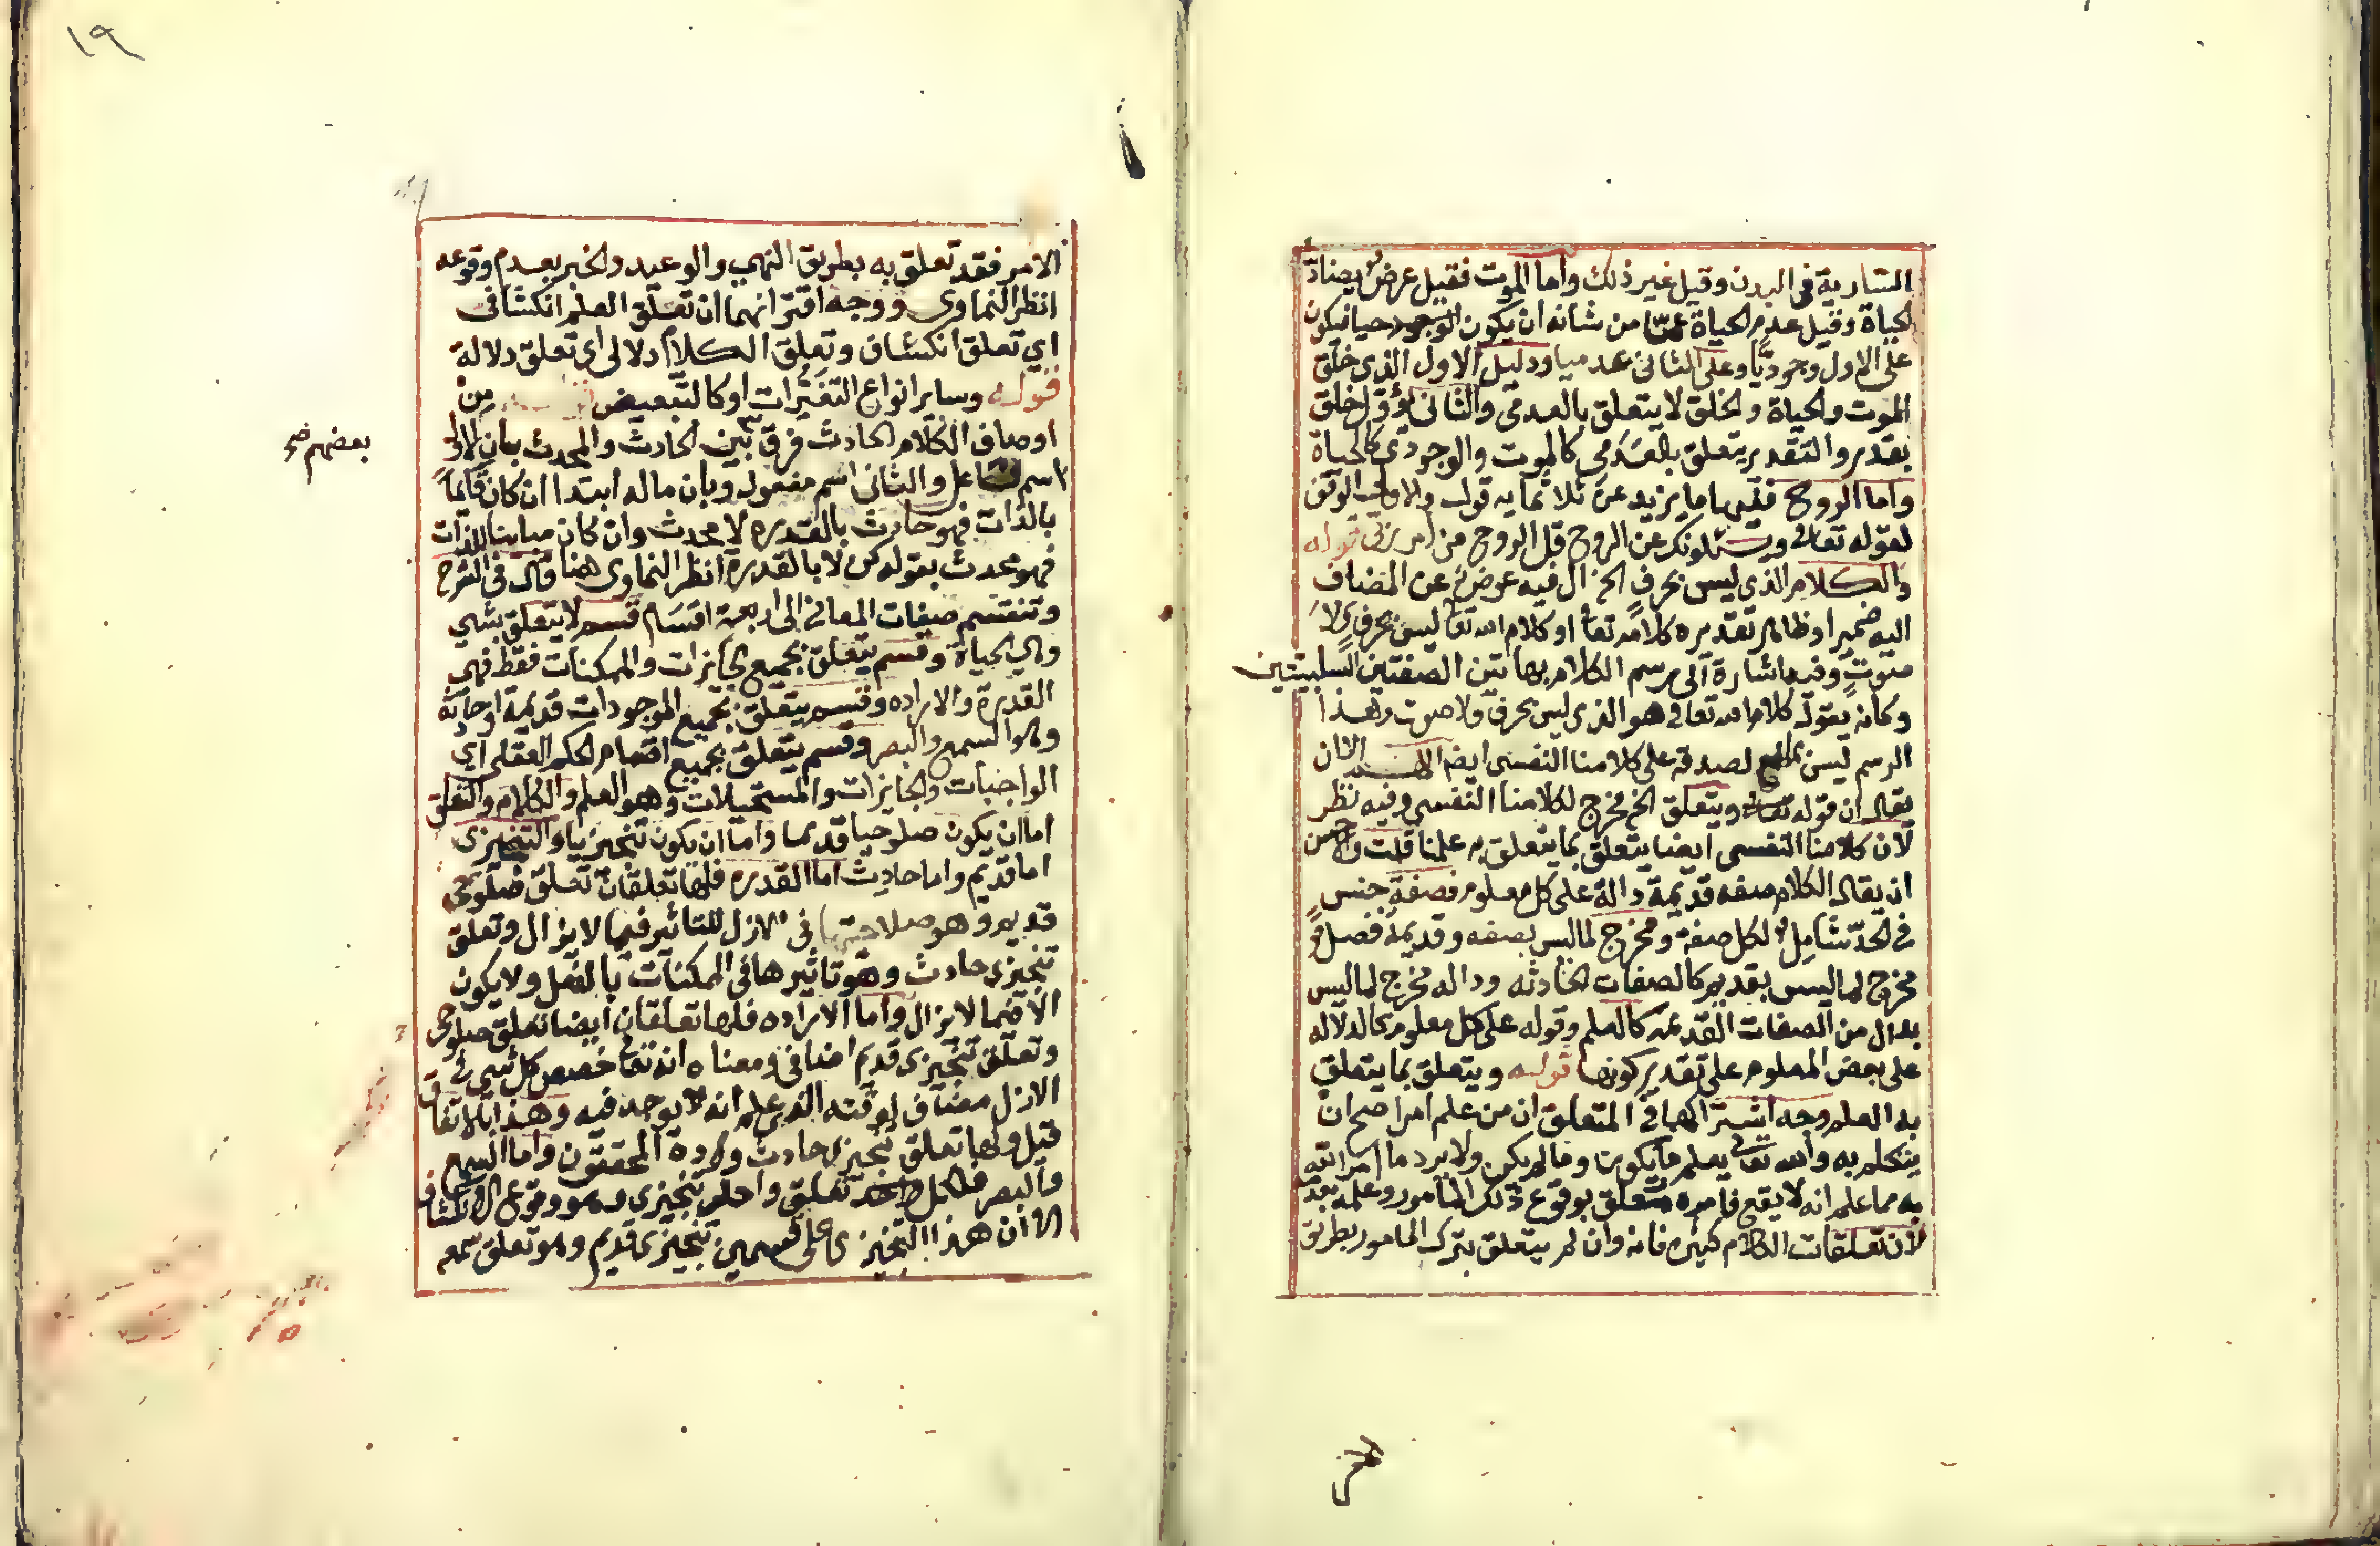 السارية في البدن وقيل غير ذلك واما الموت فقيل عرض يضاد
الحياة وقيل عدم الحياة عما من شانه ان يكون الموجود حيا فيكون
على الاول وجوديا وعلى الثاني عدميا ودليل الاول الذي خلق
الموت والحياة والخلق لا يتعلق بالعدمي والثاني يؤول خلق
بقدر والتقدير يتعلق بالعدمي كالموت والوجودي كالحياة
واما الروح ففيها ما يزيد عن ثلاثمايه قول والاولى الوقف
لقوله تعالى ويسئلونك عن الروح قل الروح من امر ربي قوله
والكلام الذي ليس بحرف الخ ال فيه عوض عن المضاف
اليه ضمير او ظاهر تقديره كلامه تعا او كلام الله تعا ليس بحرف ولا
صوت وفيه اشارة الى رسم الكلام بهاتين الصفتين السلبيتين
وكانه يقول كلام الله تعالى هو الذي ليس بحرف ولا صوت وهذا
الرسم ليس بمانع لصدقه على كلامنا النفسي ايضا الا ان
يقال ان قوله ويتعلق الخ مخرج لكلامنا النفسي وفيه نظر
لان كلامنا النفسي ايضا يتعلق بما يتعلق به علمنا قلت والاحسن
ان يقال الكلام صفه قديمة دالة على كل معلوم فصفة جنس
في الحد شامل لكل صفة ومخرج لما ليس بصفه وقديمة فصل
مخرج لما ليس بقديم كالصفات الحادثه وداله مخرج لما ليس
بدال من الصفات القديمه كالعلم وقوله على كل معلوم كالدلاله
على بعض المعلوم على تقدير كونها قوله ويتعلق بما يتعلق
به العلم وجه اشتراكهما في المتعلق ان من علم امرا صح ان
يتكلم به والله تعالى يعلم ما يكون وما لم يكن ولا يرد ما امر الله
به مما علم انه لا يقع فامره متعلق بوقوع ذلك المأمور وعلمه بعدمه
لان تعلقات الكلام كثيره فانه وان لم يتعلق بترك المامور بطريق
١٩
الامر فقد تعلق به بطريق النهي والوعيد والخبر بعدم وقوعه
انظر النماوي ووجه اقترانهما ان تعلق العلم انكشافي
اي تعلق انكشاف وتعلق الكلام دلالي اي تعلق دلالة
قوله وساير انواع التغيرات او كالتبعيض من
اوصاف الكلام الحادث فرق بين الحادث والمحدث بان الاول
بعضهم صح
اسم فاعل والثاني اسم مفعول وبان ماله ابتدا ان كان قائما
بالذات فهو حادث بالقدره لا محدث وان كان مباينا للذات
فهو محدث بقوله كن لا بالقدرة انظر النماوي هنا قال في الشرح
وتنقسم صفات المعاني الى اربعة اقسام قسم لا يتعلق بشي
وهي الحياة وقسم يتعلق بجميع الجايزات والممكنات فقط فهي
القدرة والاراده وقسم يتعلق بجميع الموجودات قديمة او حادثة
وهو السمع والبصر وقسم يتعلق بجميع اقسام الحكم العقلي اي
الواجبات والجايزات والمستحيلات وهو العلم والكلام والتعلق
اما ان يكون صلوحيا قديما واما ان يكون تنجيزيا والتنجيزي
اما قديم واما حادث اما القدره فلها تعلقان تعلق صلوحي
قديم وهو صلاحيتها في الازل للتاثير فيما لا يزال وتعلق
تنجيزي حادث وهو تاثيرها في الممكنات بالفعل ولا يكون
الا فيما لا يزال واما الاراده فلها تعلقان ايضا تعلق صلوحي
وتعلق تنجيزي قديم اضافي ومعناه انه تعا خصص كل شي في
الازل مضاف لوقته الذي علم انه يوجد فيه وهذا بالاتفاق
قيل ولها تعلق تنجيزي حادث ورده المحققون واما السمع
والبصر فلكل تعلق واحد تنجيزي وهو وقوع الانكشاف
الا ان هذا التنجيزي على قسمين تنجيزي قديم وهو تعلق سمعه